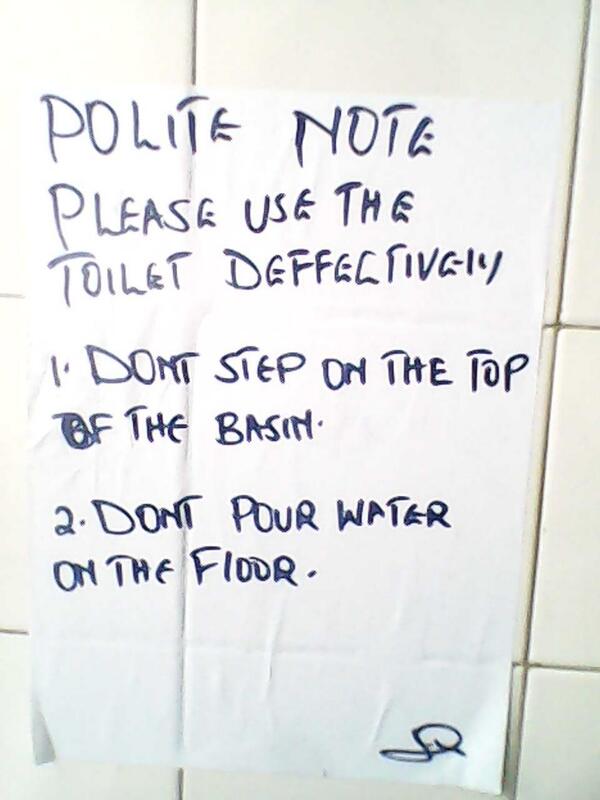 POLITE NOTE
PLEASE USE THE
TOILET DEFFECTIVELY
1. DONT STEP ON THE TOP
OF THE BASIN.
2. DONT POUR WATER
ON THE FLOOR.